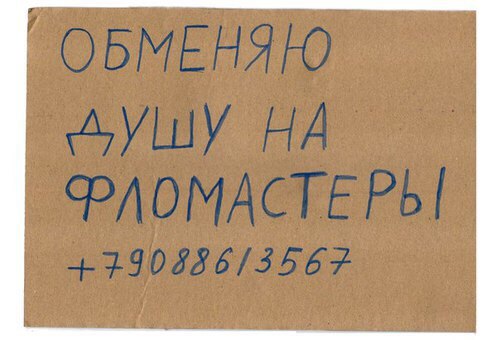 ОБМЕНЯЮ
ДУШУ НА
ФЛОМАСТЕРЫ
+79088613567